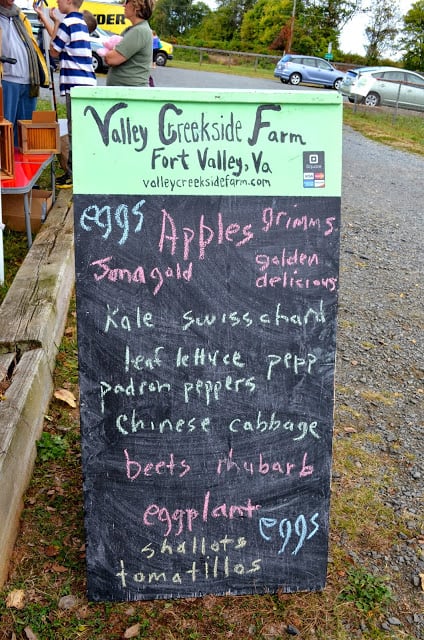 DER
Valley Creekside Farm
Fort Valley, Va
valleycreeksidefarm.com
eggs Apples grimms
Jonagold golden
delicious
Kale swisschard
leaf lettuce pepp
padron peppers
Chinese cabbage
beets rhubarb
eggplant
eggs
shallots
tomatillos